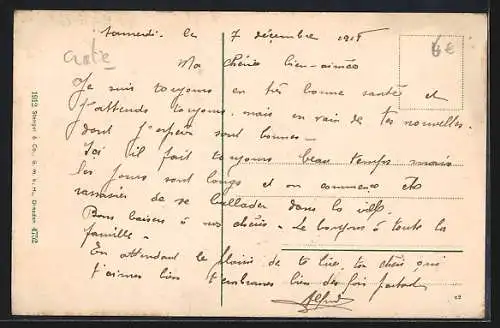 Samedi. le 7 décembre 1918
6€
Ma Chérie bien-aimée
Je suis toujours en très bonne santé et
j'attends toujours, mais en vain de tes nouvelles.
dont j'espère sont bonnes -
Ici il fait toujours beau temps mais
les jours sont longs et on commence
de se ballader dans la ville.
Bons baisers à nos chéris. - Le bonjour à toute la
famille -
En attendant le plaisir de te lire, ton chéri qui
t'aime bien t'embrasse bien des fois partout
Alfred
1912 Stengel & Co., G. m. b. H., Dresden 47702